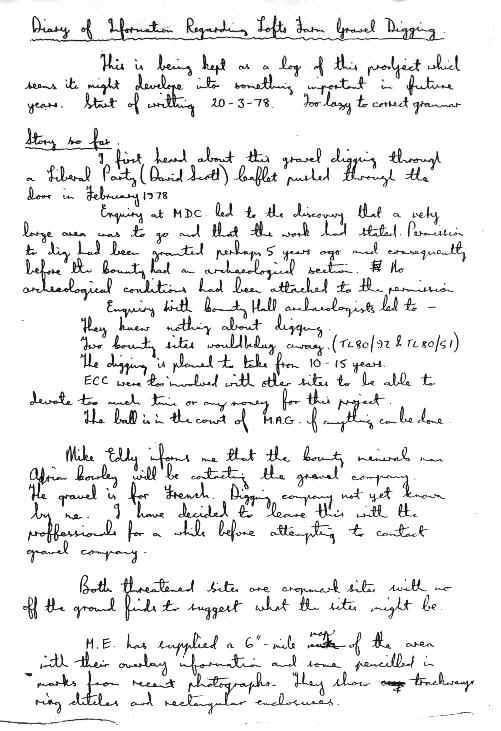 Diary of Information Regarding Lofts Farm Gravel Digging.
This is being kept as a log of this prodject which
seems it might develope into something important in future
years. Start of writting 20-3-78. Too lazy to correct grammar
Story so far.
I first heard about this gravel digging through
a Liberal Party (David Scott) leaflet pushed through the
door in February 1978
Enquiry at MDC led to the discovery that a very
large area was to go and that the work had stated. Permission
to dig had been granted perhaps 5 years ago and consequently
before the County had an archaeological section. No
archaeological conditions had been attached to the permission
Enquiry with County Hall archaeologists led to -
They knew nothing about digging.
Two County sites would be dug away. (TL80/92 & TL80/51)
The digging is planed to take from 10-15 years.
ECC were too involved with other sites to be able to
devote too much time or any money for this project.
The ball is in the court of M.A.G. if anything can be done.
Mike Eddy informs me that the County minerals man
Adrian Bowley will be contacting the gravel company
The gravel is for French. Digging company not yet known
by me. I have decided to leave this with the
proffessionals for a while before attempting to contact
gravel company.
Both threatened sites are cropmark sites with no
off the ground finds to suggest what the sites might be.
M.E. has supplied a 6"-mile map of the area
with their overlay information and some pencilled in
marks from recent photographs. They show trackways
ring ditches and rectangular enclosures.